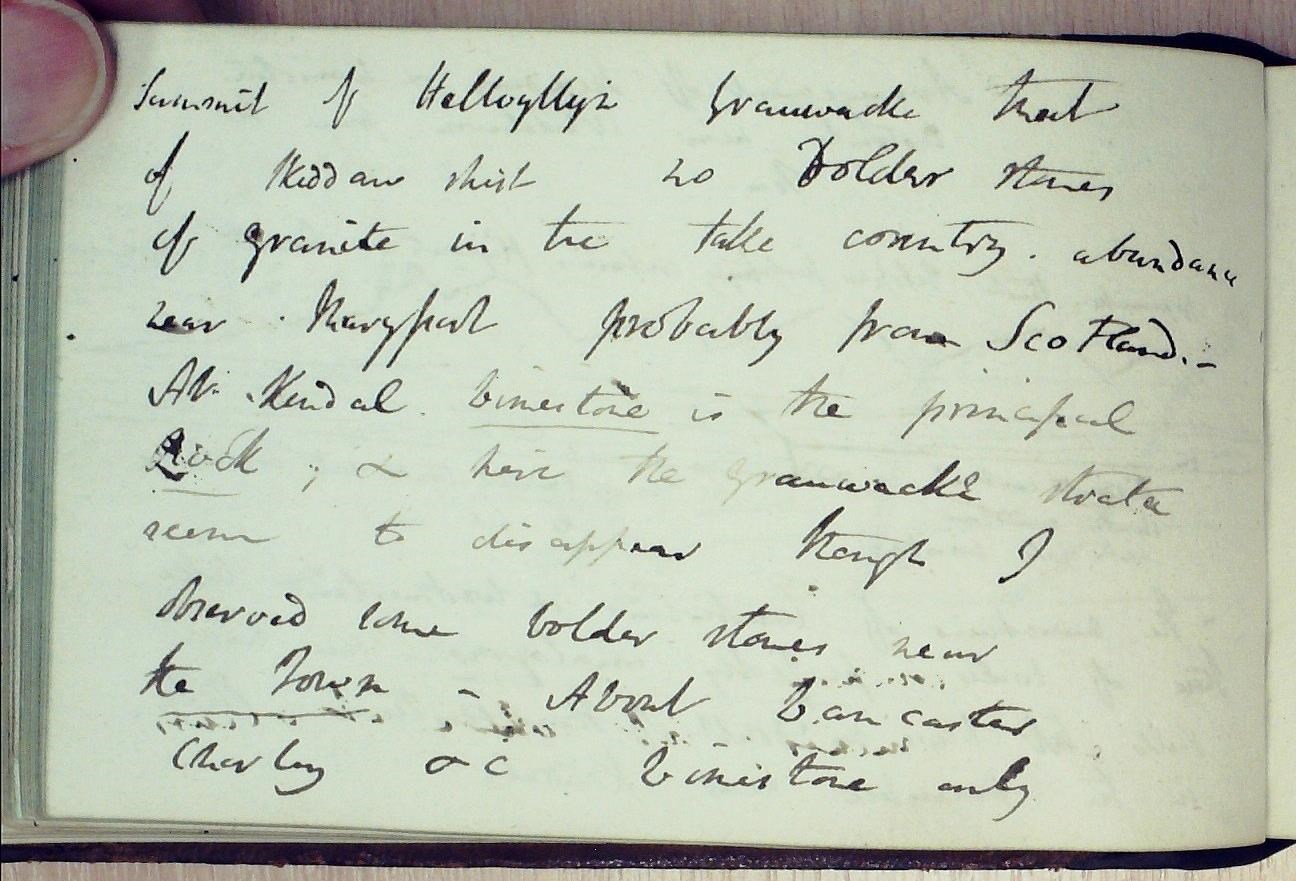 Summit of Hellvyllyn Grauwacke that
of Skiddaw shist no Bolder stones
of granite in the lake country. abundance
near Maryport probably from Scotland. -
At Kendal. Limestone is the principal
Rock ; & here the grauwacke strata
seem to disappear though I
observed some bolder stones near
the Town - About Lancaster
Chorley &c Limestone only